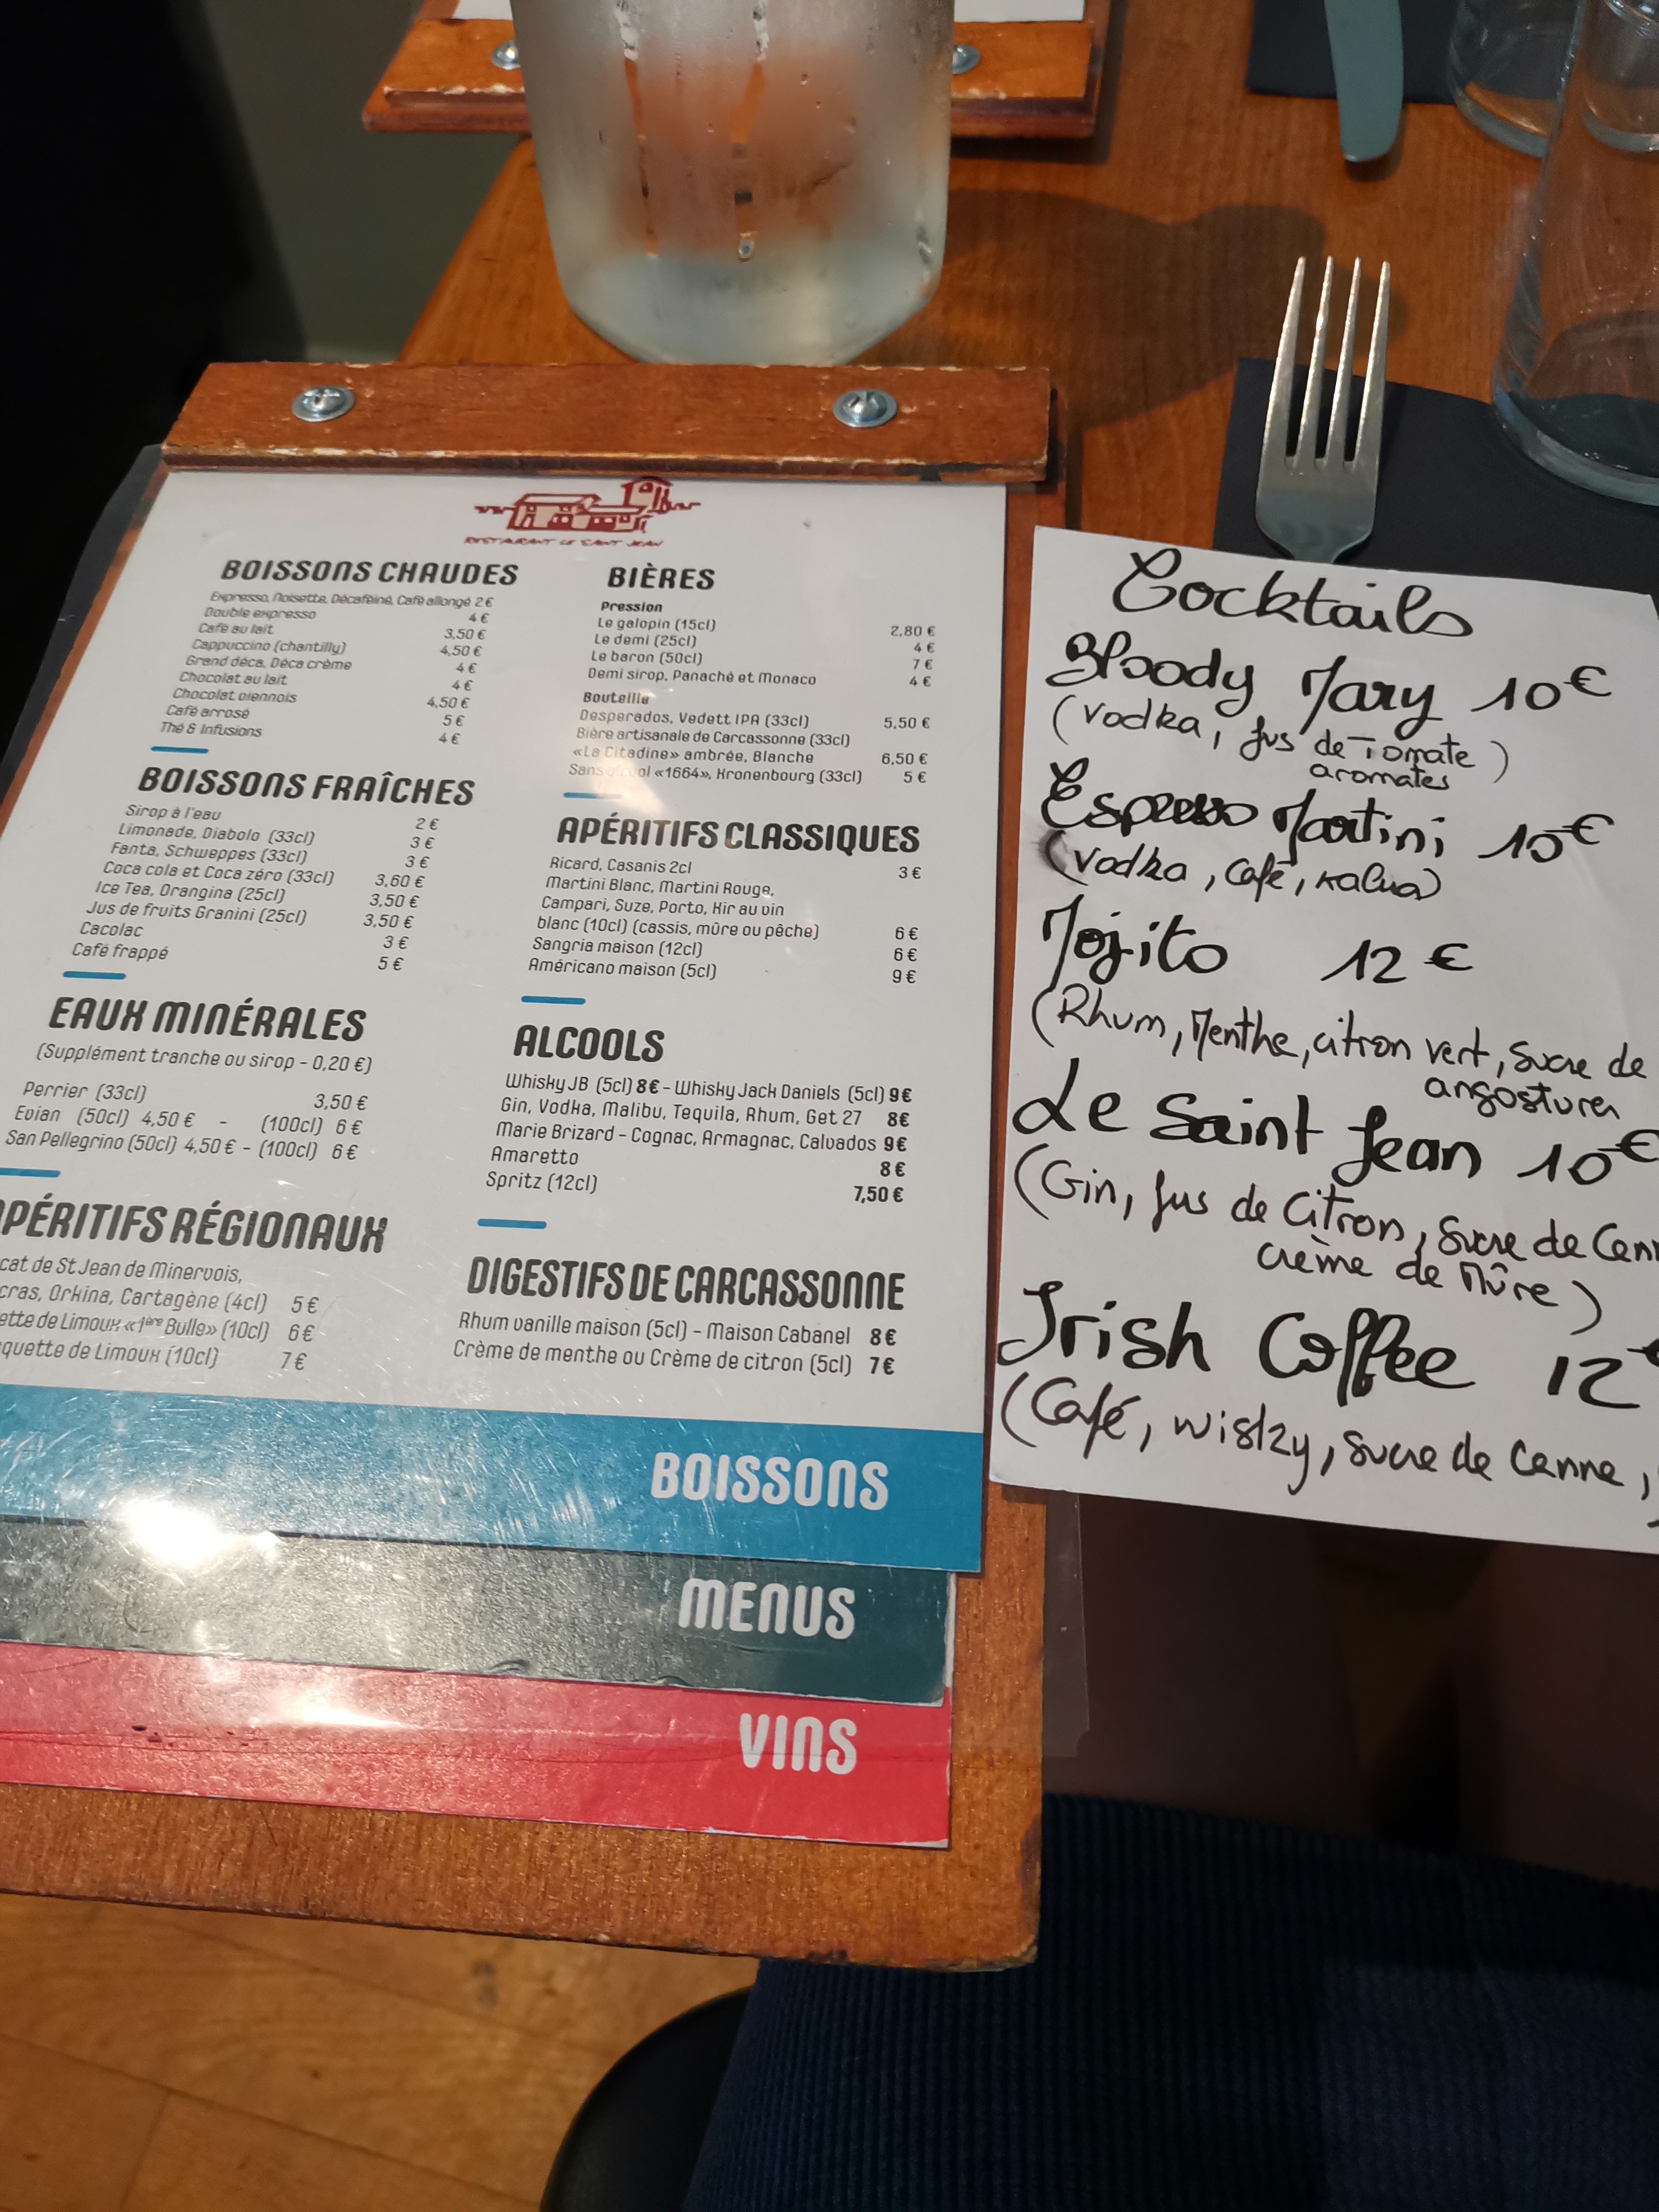 RESTAURANT LE SAINT JEAN
BOISSONS CHAUDES
Expresso, Noisette, Décaféiné, Café allongé 2 €
Double expresso 4 €
Café au lait 3,50 €
Cappuccino (chantilly) 4,50 €
Grand déca, Déca crème 4 €
Chocolat au lait 4 €
Chocolat viennois 4,50 €
Café arrosé 5 €
Thé & Infusions 4 €
BOISSONS FRAÎCHES
Sirop à l'eau 2 €
Limonade, Diabolo (33cl) 3 €
Fanta, Schweppes (33cl) 3 €
Coca cola et Coca zéro (33cl) 3,60 €
Ice Tea, Orangina (25cl) 3,50 €
Jus de fruits Granini (25cl) 3,50 €
Cacolac 3 €
Café frappé 5 €
EAUX MINÉRALES
(Supplément tranche ou sirop - 0,20 €)
Perrier (33cl) 3,50 €
Evian (50cl) 4,50 € - (100cl) 6 €
San Pellegrino (50cl) 4,50 € - (100cl) 6 €
PÉRITIFS RÉGIONAUX
cat de St Jean de Minervois,
cras, Orkina, Cartagène (4cl) 5 €
ette de Limoux «1ère Bulle» (10cl) 6 €
quette de Limoux (10cl) 7 €
BIÈRES
Pression
Le galopin (15cl) 2,80 €
Le demi (25cl) 4 €
Le baron (50cl) 7 €
Demi sirop, Panaché et Monaco 4 €
Bouteille
Desperados, Vedett IPA (33cl) 5,50 €
Bière artisanale de Carcassonne (33cl)
«La Citadine» ambrée, Blanche 6,50 €
Sans alcool «1664», Kronenbourg (33cl) 5 €
APÉRITIFS CLASSIQUES
Ricard, Casanis 2cl 3 €
Martini Blanc, Martini Rouge,
Campari, Suze, Porto, Kir au vin
blanc (10cl) (cassis, mûre ou pêche) 6 €
Sangria maison (12cl) 6 €
Américano maison (5cl) 9 €
ALCOOLS
Whisky JB (5cl) 8 € - Whisky Jack Daniels (5cl) 9 €
Gin, Vodka, Malibu, Tequila, Rhum, Get 27 8€
Marie Brizard - Cognac, Armagnac, Calvados 9 €
Amaretto 8 €
Spritz (12cl) 7,50 €
DIGESTIFS DE CARCASSONNE
Rhum vanille maison (5cl) - Maison Cabanel 8 €
Crème de menthe ou Crème de citron (5cl) 7 €
BOISSONS
MENUS
VINS
Cocktails
Bloody Mary 10 €
(Vodka, jus de Tomate)
aromates
Espresso Martini 10 €
(Vodka, Café, Kalua)
Mojito 12 €
(Rhum, Menthe, citron vert, sucre de
angostura
Le Saint Jean 10 €
(Gin, jus de Citron, sucre de Cann
crème de Mûre)
Irish Coffee 12 €
(Café, wisky, sucre de Canne,